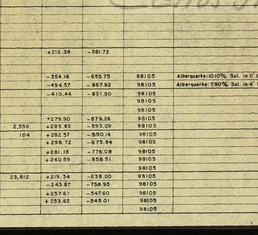 +212.38 -581.72
-354.18 -655.75 98105 Alberquerke: 10.10% Sul. in 11'
-494.57 -867.92 98105 Alberquerke: 7.90% Sul. in 4'
-410.44 -831.50 98105
98105
98105
+279.90 -879.26 98105
2,556 +295.83 -593.09 98105
104 +282.57 -590.14 98105
+298.72 -675.84 98105
+281.15 -778.08 98105
+240.59 -858.51 98105
98105
23,812 +219.34 -638.00 98105
-243.87 -758.95 98105
+257.61 -547.60 98105
+253.62 -545.01 98105
98105